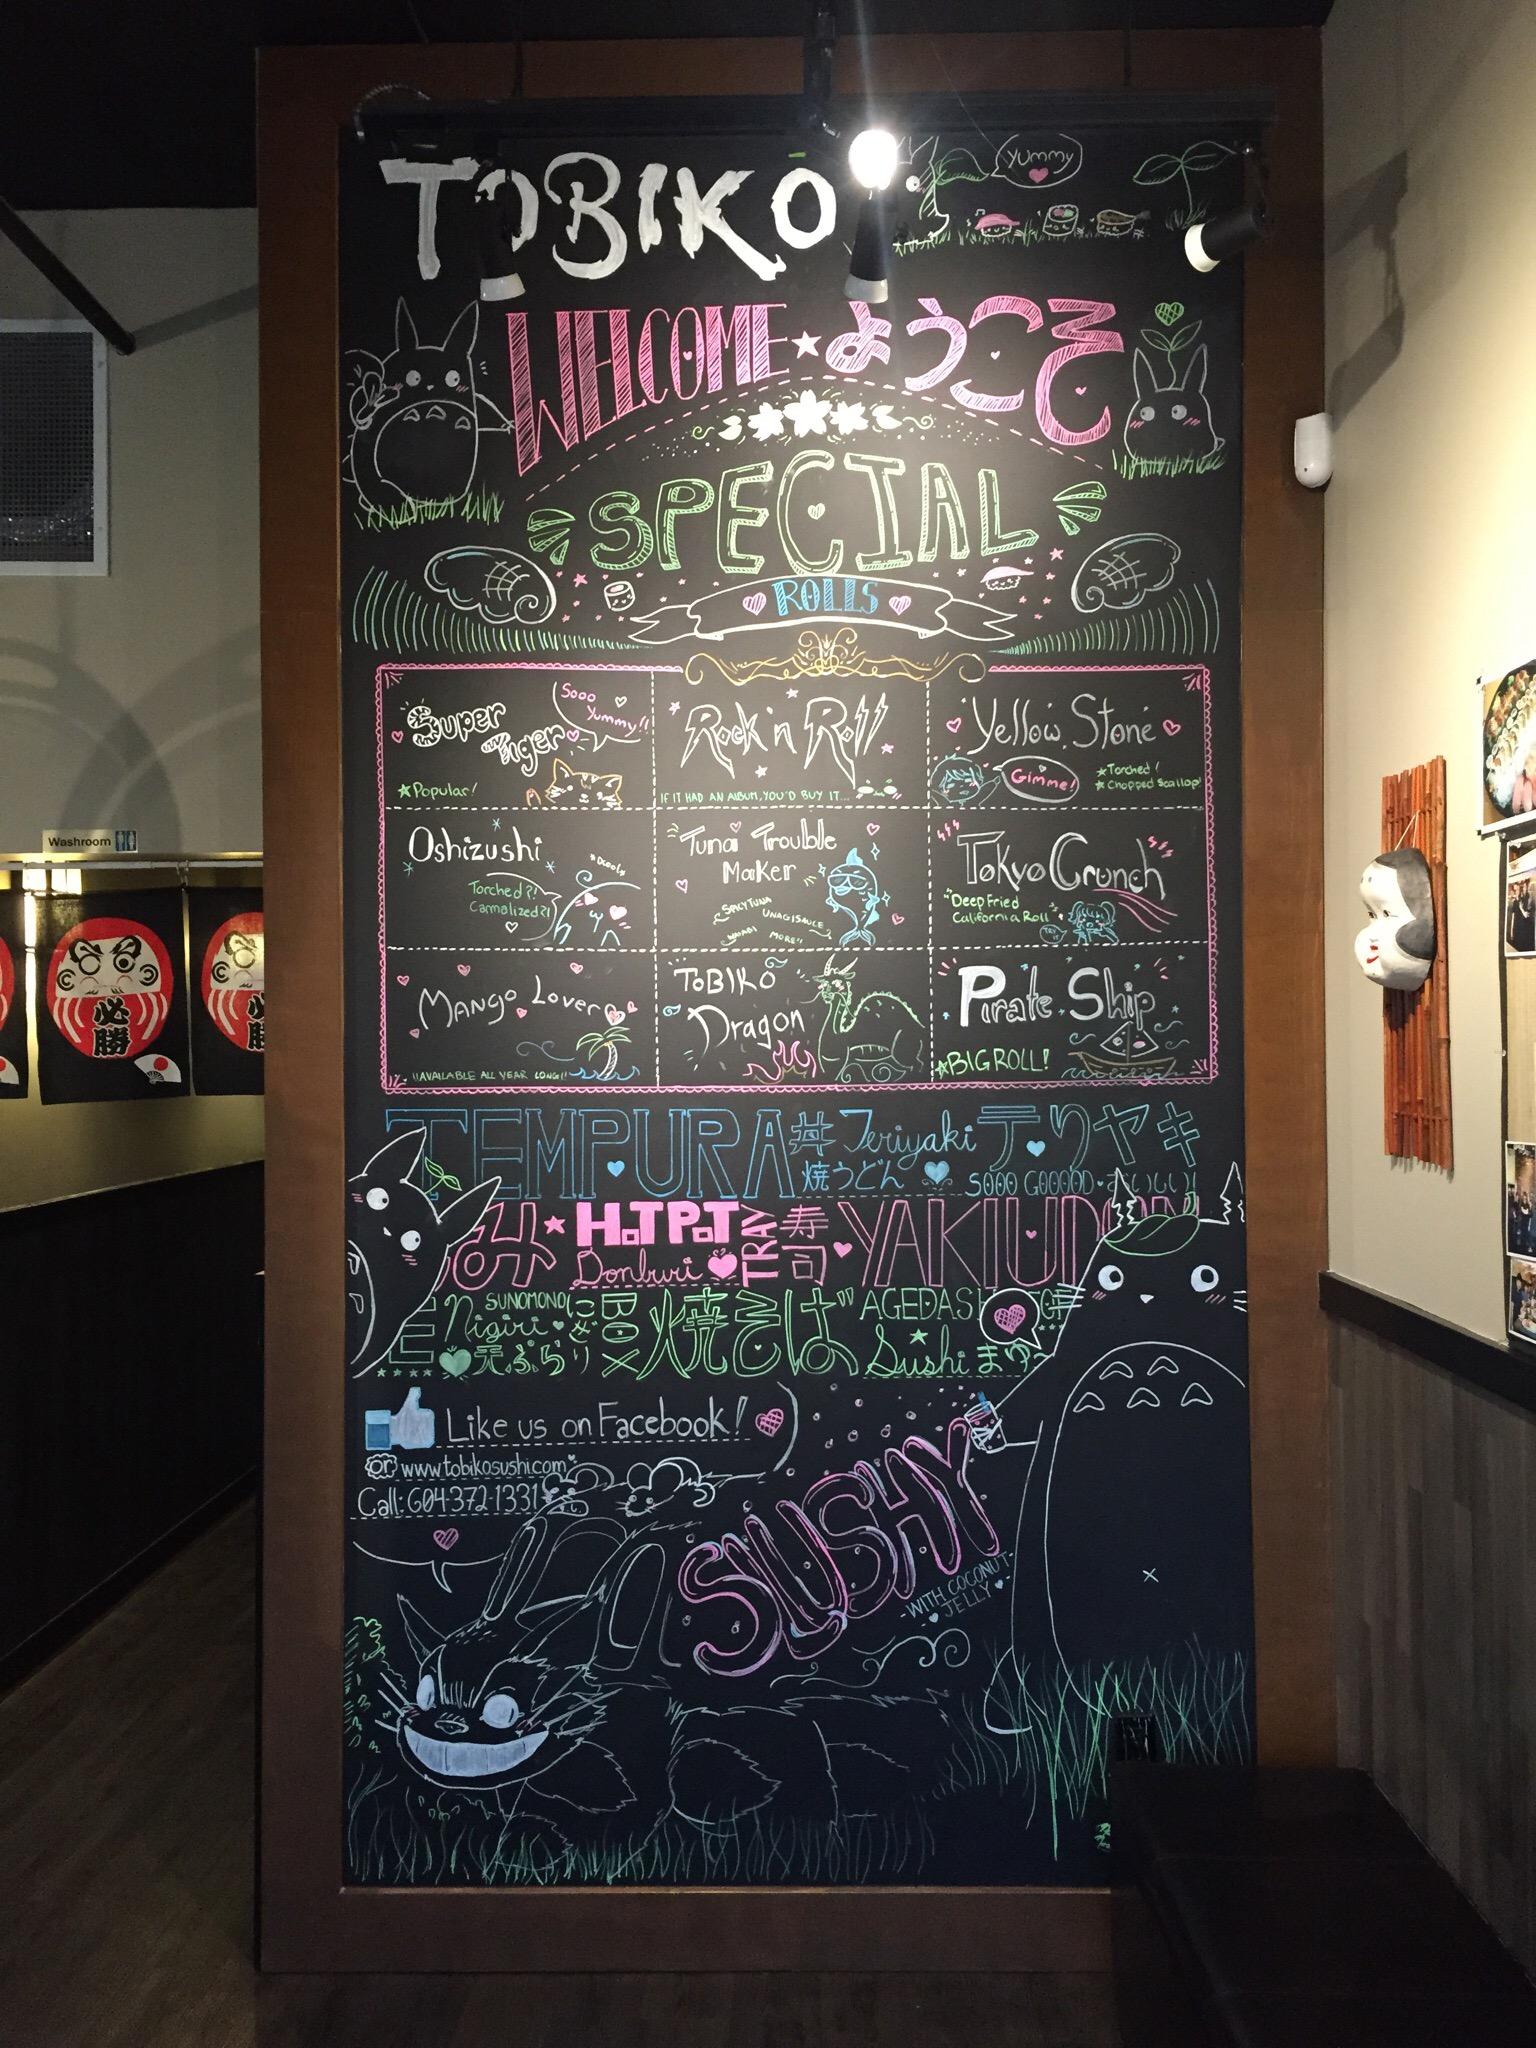 TOBIKO
Yummy
WELCOME ★ ようこそ
SPECIAL
ROLLS
Super Tiger
Sooo Yummy!!
★Popular!
Rock 'n Roll
IF IT HAD AN ALBUM, YOU'D BUY IT...
Yellow Stone
Gimme!
★Torched!
★Chopped Scallop!
Oshizushi
Torched?!
Carmalized?!
Tuna Trouble
Maker
SPICY TUNA
UNAGI SAUCE
WASABI
MORE!!
Tokyo Crunch
"Deep Fried
California Roll
TRY IT
Mango Lover
!!AVAILABLE ALL YEAR LONG!!
TOBIKO
Dragon
Pirate Ship
★BIG ROLL!
TEMPURA 丼 Teriyaki テリヤキ
焼うどん SOOO GOOOOD・おいしい!
み★HOTPOT TRAY 寿司 YAKIUDON
Donburi
Nigiri SUNOMONO にぎり BOX 焼そば AGEDASHI
天ぷら Sushi ★
Like us on Facebook!
or www.tobikosushi.com
Call: 604-372-1331
SUSHY
-WITH COCONUT-
JELLY
Washroom
必勝
必勝